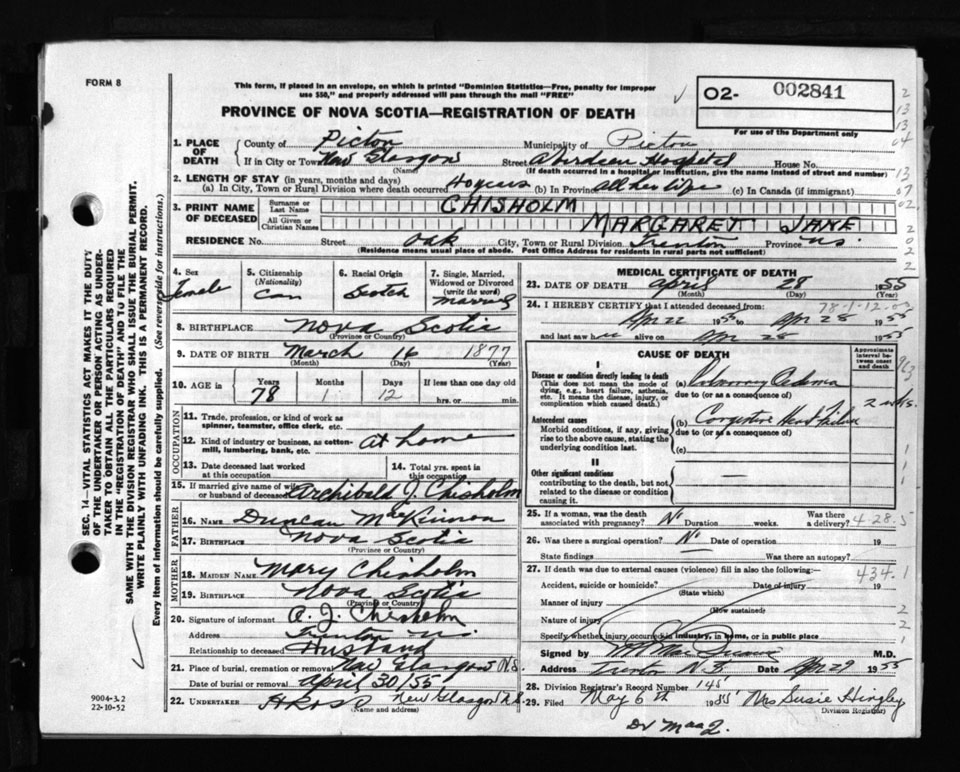 FORM 8
This form, if placed in an envelope, on which is printed "Dominion Statistics—Free, penalty for improper
use $50," and properly addressed will pass through the mail "FREE"
PROVINCE OF NOVA SCOTIA—REGISTRATION OF DEATH
O2- 002841
For use of the Department only
1. PLACE OF DEATH
County of Pictou Municipality of Pictou
If in City or Town New Glasgow Street Aberdeen Hospital House No.
(Name) (If death occurred in a hospital or institution, give the name instead of street and number)
2. LENGTH OF STAY (in years, months and days)
(a) In City, Town or Rural Division where death occurred 40 years (b) In Province all her life (c) In Canada (if immigrant)
3. PRINT NAME OF DECEASED
Surname or Last Name CHISHOLM
All Given or Christian Names MARGARET JANE
RESIDENCE No. Street Oak City, Town or Rural Division Trenton Province N.S.
(Residence means usual place of abode. Post Office Address for residents in rural parts not sufficient)
4. Sex Female
5. Citizenship (Nationality) Can
6. Racial Origin Scotch
7. Single, Married, Widowed or Divorced (write the word) Married
8. BIRTHPLACE Nova Scotia
(Province or Country)
9. DATE OF BIRTH March 16 1877
(Month) (Day) (Year)
10. AGE in Years 78 Months 1 Days 12 If less than one day old hrs. or min.
OCCUPATION
11. Trade, profession, or kind of work as
spinner, teamster, office clerk, etc.
12. Kind of industry or business, as cotten- At home
mill, lumbering, bank, etc.
13. Date deceased last worked at this occupation
14. Total yrs. spent in this occupation
15. If married give name of wife
or husband of deceased Archibald J. Chisholm
FATHER
16. NAME Duncan MacKinnon
17. BIRTHPLACE Nova Scotia
(Province or Country)
MOTHER
18. MAIDEN NAME Mary Chisholm
19. BIRTHPLACE Nova Scotia
(Province or Country)
20. Signature of informant A. J. Chisholm
Address Trenton N.S.
Relationship to deceased Husband
21. Place of burial, cremation or removal New Glasgow N.S.
Date of burial or removal April 30/55
22. UNDERTAKER H Ross New Glasgow N.S.
(NAME AND ADDRESS)
MEDICAL CERTIFICATE OF DEATH
23. DATE OF DEATH April 28 1955
(Month) (Day) (Year)
24. I HEREBY CERTIFY that I attended deceased from:
78-1-12
Apr 22 1955 to Apr 28 1955
and last saw her alive on Apr 28 1955
CAUSE OF DEATH
Approximate interval between onset and death
I
Disease or condition directly leading to death
(This does not mean the mode of
dying, e.g., heart failure, asthenia,
etc. It means the disease, injury, or
complication which caused death.)
(a) Pulmonary Oedema
due to (or as a consequence of)
2 wks.
Antecedent causes
Morbid conditions, if any, giving
rise to the above cause, stating the
underlying condition last.
(b) Congestive Heart Failure
due to (or as a consequence of)
(c)
II
Other significant conditions
contributing to the death, but not
related to the disease or condition
causing it.
25. If a woman, was the death
associated with pregnancy? No Duration weeks. Was there a delivery?
428.5
26. Was there a surgical operation? No Date of operation 19
State findings Was there an autopsy?
27. If death was due to external causes (violence) fill in also the following:—
434.1
Accident, suicide or homicide? Date of injury 19
(State which)
Manner of injury
(How sustained)
Nature of injury
Specify whether injury occurred in industry, in home, or in public place
Signed by M.D.
Address Trenton N.S. Date Apr 29 1955
28. Division Registrar's Record Number 145
29. Filed May 6th 1955 Mrs Susie Hingley
Division Registrar)
SEC. 14—VITAL STATISTICS ACT MAKES IT THE DUTY
OF THE UNDERTAKER OR PERSON ACTING AS UNDER-
TAKER TO OBTAIN ALL THE PARTICULARS REQUIRED
IN THE "REGISTRATION OF DEATH" AND TO FILE THE
SAME WITH THE DIVISION REGISTRAR WHO SHALL ISSUE THE BURIAL PERMIT.
WRITE PLAINLY WITH UNFADING INK. THIS IS A PERMANENT RECORD.
Every item of information should be carefully supplied. (See reverse side for instructions.)
9004-3.2
22-10-52